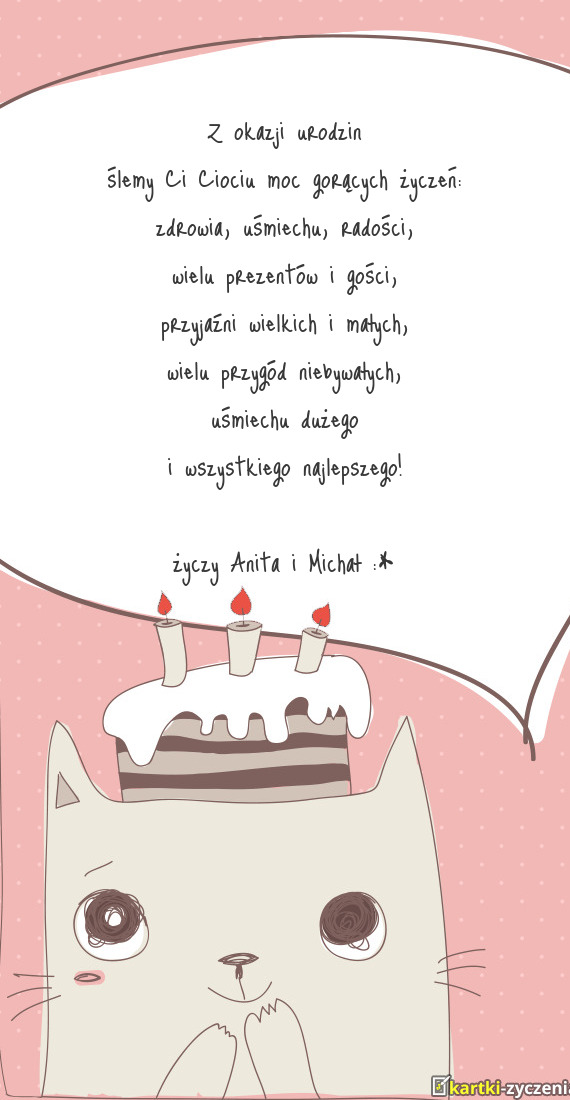 Z okazji urodzin
ślemy Ci Ciociu moc gorących życzeń:
zdrowia, uśmiechu, radości,
wielu prezentów i gości,
przyjaźni wielkich i małych,
wielu przygód niebywałych,
uśmiechu dużego
i wszystkiego najlepszego!
życzy Anita i Michał :*
kartki-zyczenia